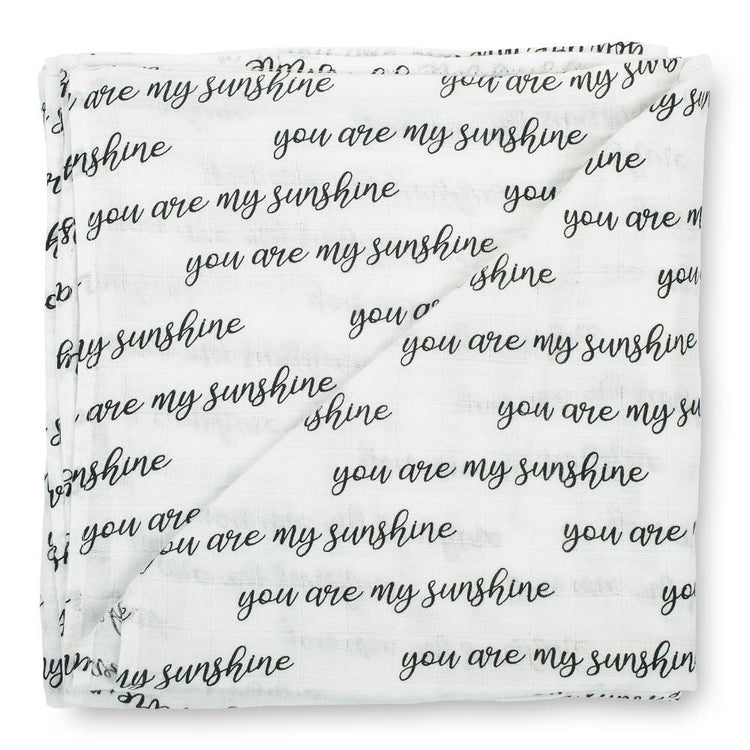 are my sunshine you are my sun
my su
you are my sunshine
nshine ine
you are my sunshine you
you are m
you are my sunshine
shine you
you a
my sunshine you are my sunshine
are my sunshine
shine you are my su
nshine you are my sunshine
you are
ou are my sunshine you are
you are my sunshine yo
my sunshine you are my sunshin